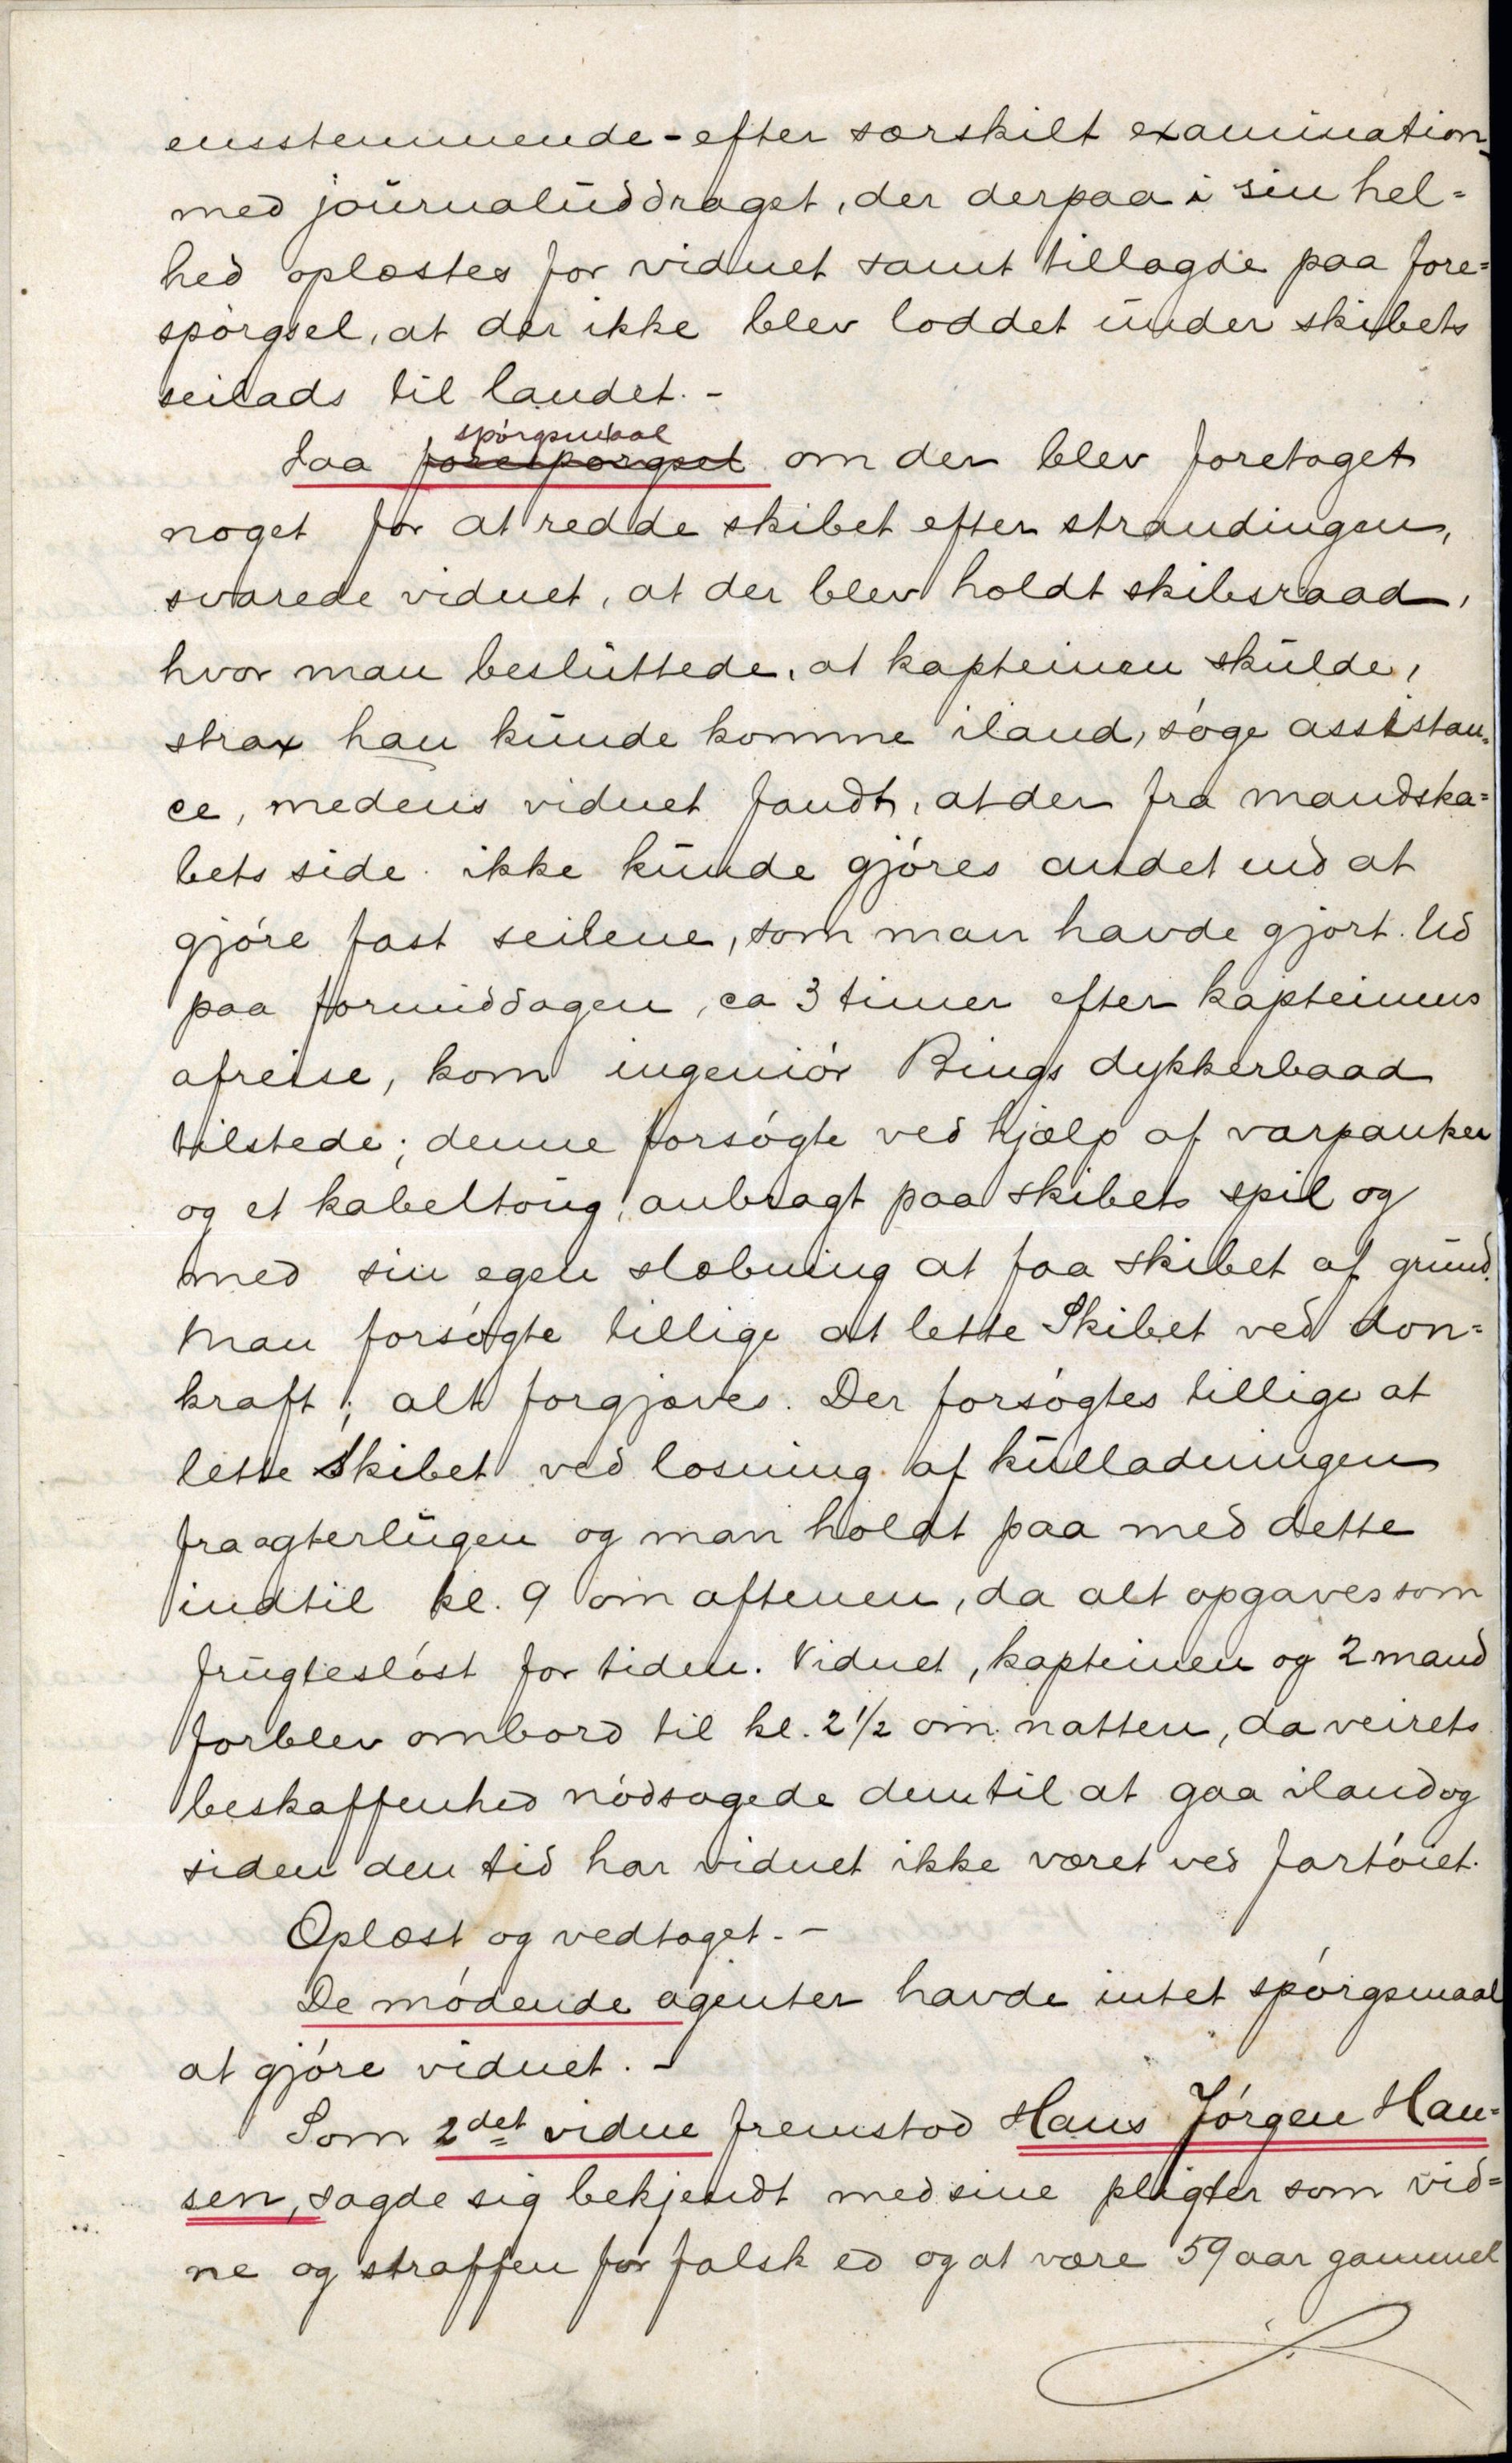 ensstemmende - efter særskilt examination -
med journaluddraget, der derpaa i sin hel=
hed oplæstes for vidnet samt tillagde paa fore=
spørgsel, at der ikke blev loddet under skibets
seilads til landet. -
spørgsmaal
Paa forespørgsel om der blev foretaget
noget for at redde skibet efter strandingen,
svarede vidnet, at der blev holdt skibsraad,
hvor man besluttede, at kapteinen skulde,
strax han kunde komme iland, søge assistan=
ce, medens vidnet fandt, at der fra mandska=
bets side ikke kunde gjøres andet end at
gjøre fast seilene, som man havde gjort. Ud
paa formiddagen, ca 3 timer efter kapteinens
afreise, kom ingeniør Rings dykkerbaad
tilstede; denne forsøgte ved hjælp af varpanker
og et kabeltoug, anbragt paa skibets spil og
med sin egen slæbning at faa skibet af grund.
Man forsøgte tillige at lette Skibet ved don=
kraft; alt forgjæves. Der forsøgtes tillige at
lette Skibet ved losning af kulladningen
fra agterlugen og man holdt paa med dette
indtil kl. 9 om aftenen, da alt opgaves som
frugtesløst for tiden. Vidnet, kapteinen og 2 mand
forblev ombord til kl. 2 1/2 om natten, da veirets
beskaffenhed nødsagede dem til at gaa iland og
siden den tid har vidnet ikke været ved fartøiet.
Oplæst og vedtaget. -
De mødende agenter havde intet spørgsmaal
at gjøre vidnet. -
Som 2det vidne fremstod Hans Jørgen Han=
sen, sagde sig bekjendt med sine pligter som vid=
ne og straffen for falsk ed og at være 59 aar gammel